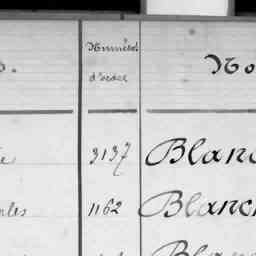 Numéros
d'ordre
No
3137 Blanc
1162 Blanch
Blan